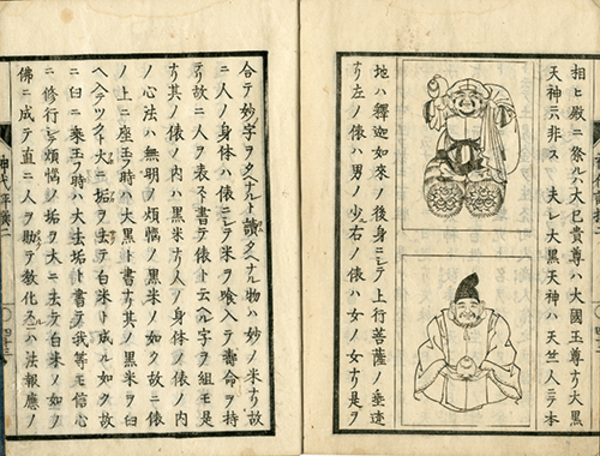 相ヒ殿ニ祭ルハ大已貴尊ハ大國王尊ナリ大黒
天神ニハ非ス夫レ大黒天神ハ天竺人ニテ本
地ハ釋迦如來ノ後身ニシテ上行菩薩ノ垂迹
ナリ左ノ俵ハ男ノ少右ノ俵ハ女ノ女ナリ是ヲ
合テ妙ノ字ヲタヘナルト讀タヘナル物ハ妙ノ米ナリ故
ニ人ノ身体ハ俵ニシテ米ヲ喰入テ壽命ヲ持
テリ故ニ人ヲ表スト書テ俵ト云ヘル字ヲ組モ是
ナリ其ノ俵ノ内ハ黒米ナリ人ノ身体ノ俵ノ内
ノ心法ハ無明ノ煩悩ノ黒米ノ如ク故ニ俵
ノ上ニ座玉フ時ハ大黒ト書ナリ其ノ黒米ヲ臼
ヘ入テツクト大ニ垢ヲ去テ白米ト成ル如ク故
ニ臼ニ乗玉フ時ハ大去垢ト書テ我等モ信心
ニ修行シテ煩悩ノ垢ヲ大ニ去テ白米ノ如ノ
佛ニ成テ直ニ人ヲ助テ教化スルハ法報應ノ
四十三